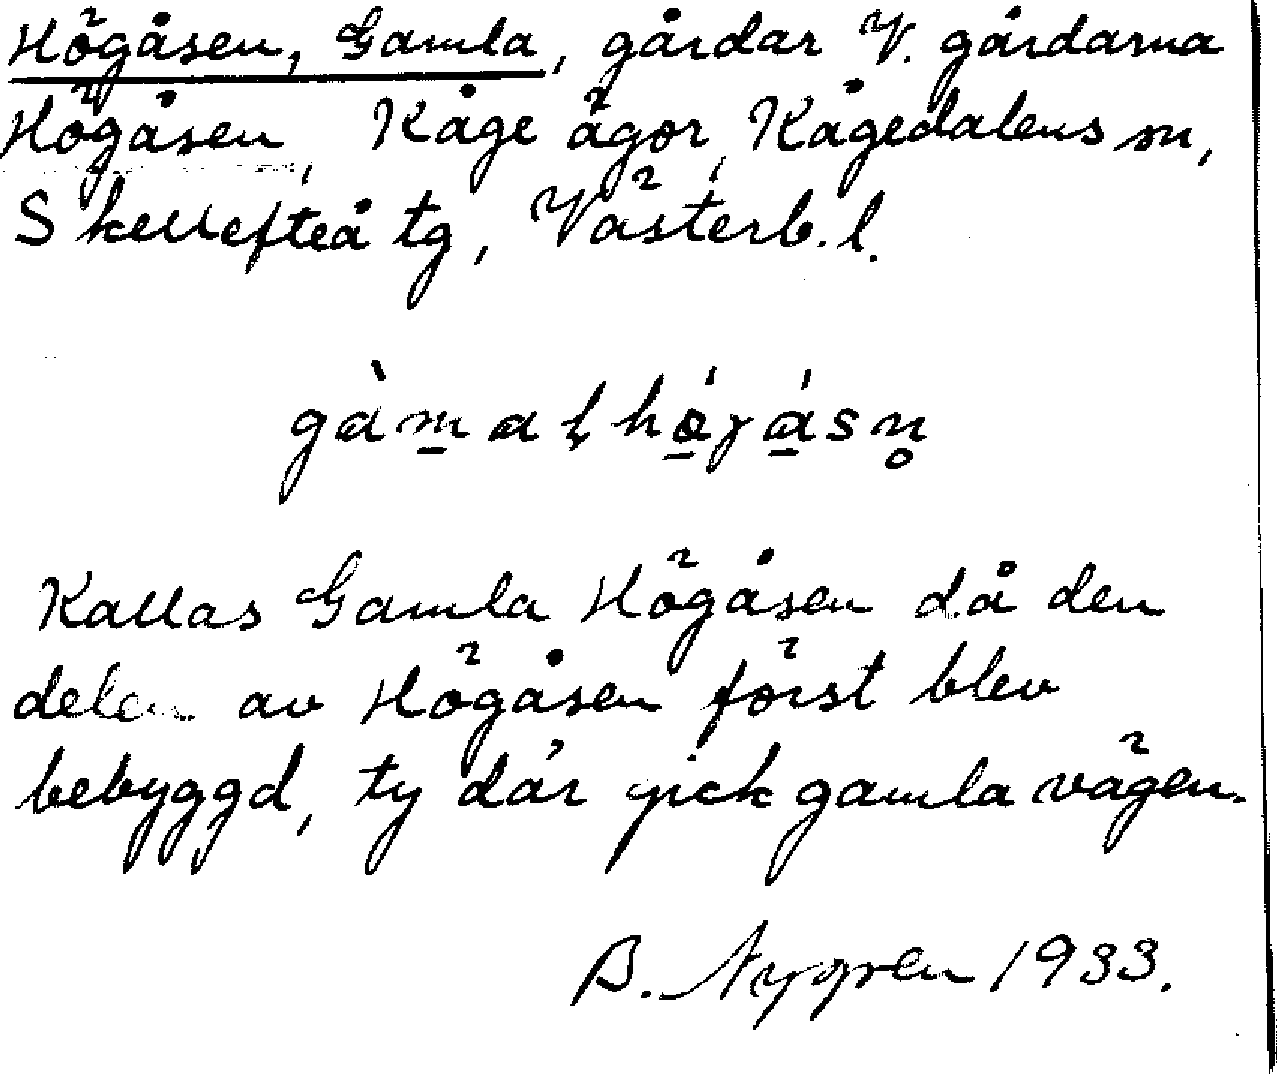 Högåsen, Gamla, gårdar V. gårdarna
Högåsen, Kåge ägor, Kågedalens sn,
Skellefteå tg, Västerb. l.
gàmaḷhǿγásn̥
Kallas Gamla Högåsen då den
delen av Högåsen först blev
bebyggd, ty där gick gamla vägen.
B. Nygren 1933.